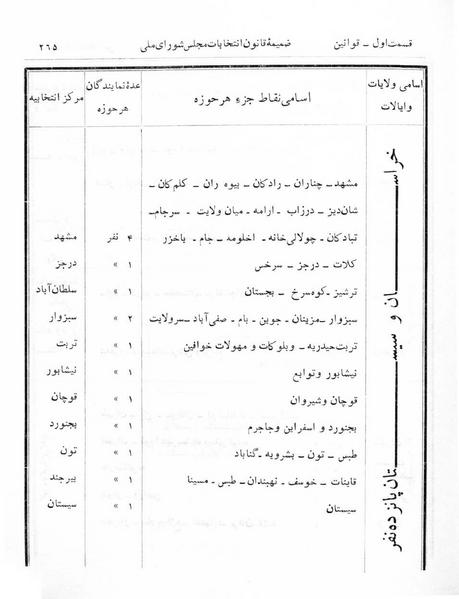 قسمت اول ـ قوانین ضمیمهٔ قانون انتخابات مجلس شورای ملی ۲۶۵
اسامی ولایات وایالات اسامی نقاط جزء هر حوزه عدهٔ نمایندگان هر حوزه مرکز انتخابیه
خراسان و سیستان پانزده نفر
مشهد ـ چناران ـ رادکان ـ بیوه ران ـ کلم کان ـ
شان دیز ـ درزاب ـ ارامه ـ میان ولایت ـ سرجام ـ
تبادکان ـ چولائی خانه ـ اخلومه ـ جام ـ باخزر ۴ نفر مشهد
کلات ـ درجز ـ سرخس ۱ » درجز
ترشیز ـ کوه سرخ ـ بجستان ۱ » سلطان آباد
سبزوار ـ مزینان ـ جوین ـ بام ـ صفی آباد ـ سرولایت ۲ » سبزوار
تربت حیدریه ـ وبلوکات و مهولات خوافین ۱ » تربت
نیشابور وتوابع ۱ » نیشابور
قوچان وشیروان ۱ » قوچان
بجنورد و اسفراین وجاجرم ۱ » بجنورد
طبس ـ تون ـ بشرویه ـ گناباد ۱ » تون
قاینات ـ خوسف ـ نهبندان ـ طبس ـ مسینا ۱ » بیرجند
سیستان ۱ » سیستان